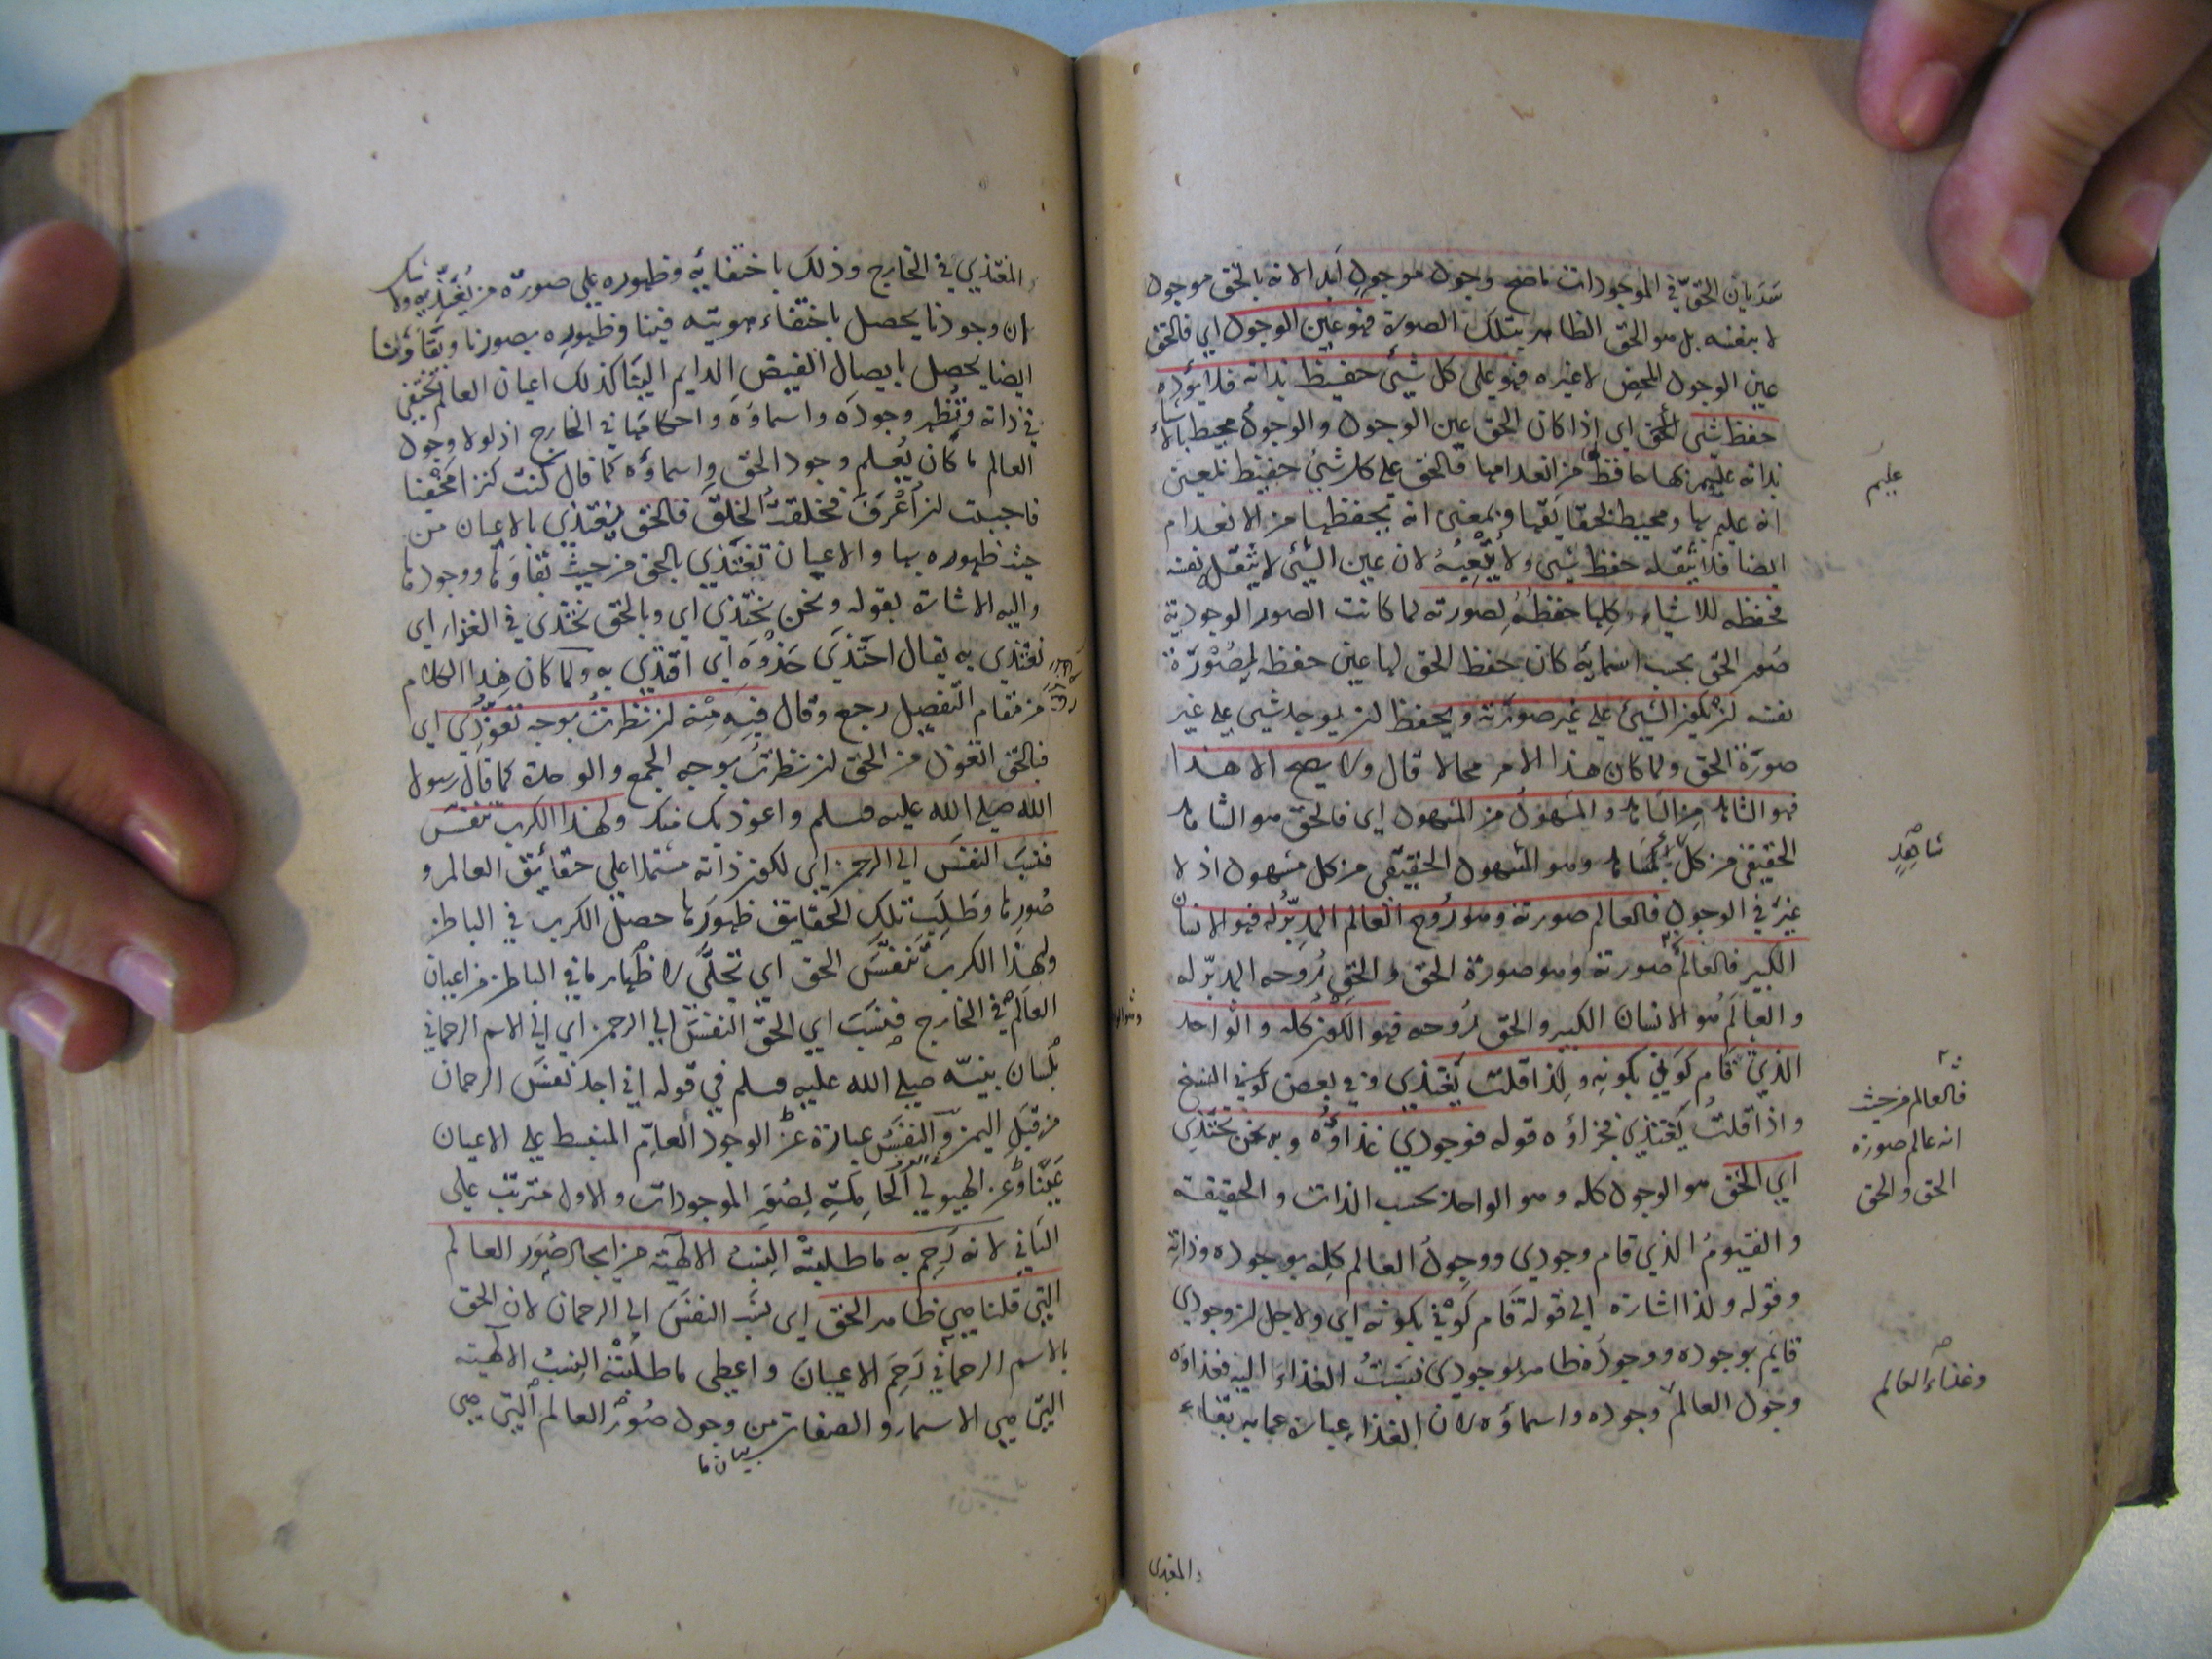 سَرَيان الحقّ في الموجودات ما صح وجود موجودٍ ابدا لانه بالحق موجود
لا بنفسه بل هو الحق الظاهر بتلك الصورة فهو عين الوجود اي فالحق
عين الوجود المحض لا غيره فهو على كل شيئ حفيظ بذاته فلا يؤده
حفظ شئ اي اذا كان الحق عين الوجود والوجود محيط بالاشياء
بذاته عليم بها حافظ من انعدامها فالحق على كل شئ حفيظ بمعنى
انه عليم بها ومحيط بحقايقها وبمعنى انه يحفظها من الانعدام
ايضا فلا يثقله حفظ شئ ولا يُتْعِبُهُ لان عين الشئ لا يثقل نفسه
فحفظه للاشياء كلها حفظُهُ لصورته لما كانت الصور الوجودية
صُور الحق بحسب اسمائه كان حفظ الحق لها عين حفظه لِصُوْرَة
نفسه ان يكون الشئ على غير صورته ويحفظ ان يوجد شئ على غير
صورَة الحق ولما كان هذا الامر محالا قال ولا يصح الا هذا
فهو الشاهد من الشاهد والمشهود من المشهود اي فالحق هو الشاهد
الحقيقى من كل شاهد وهو المشهود الحقيقى من كل مشهود اذ لا
غيرَ في الوجود فالعالم صورته وهو رُوح العالم المدبّر له فهو الانسان
الكبير فالعالَمُ صورته وهو صورة الحق والحق رُوحه المدبّر له
والعالَم هو الانسان الكبير والحق رُوحه فهو الكون كله والواحد
الذي قَام كَوْني بكونِه ولِذا قلت يَغْتَذي وفي بعض النسخ
واذا قلتُ يَغْتذي فجزاؤه قوله فوجودي غذاؤه وبه نحن نحتَذي
اي الحق هو الوجود كله وهو الواحد بحسب الذات والحقيقة
والقيومُ الذي قام وجودي ووجودُ العالم كلِه بوجوده وذاتِه
وقوله ولذا اشارة الى قوله قَام كَوْني بكونه اي ولاجل ان وجودي
قايم بوجوده ووجودُه ظاهر بوجودي نسَبْتُ الغذاءَ اليه فغذاؤه
وجود العالم وجوده واسماؤه لان الغذاء عبارة عما به بقاء
عليم
شاهِدٍ
فالعالم من حيث
انه عالم صورة
الحق والحق
وغذاء العالم
المغتذي
المغتذي في الخارج وذلك باختفائه وظهوره على صورة من يُغَذّيه ولا شك
ان وجودنا يحصل باختفاء هويته فينا وظهوره بصورنا وبقاؤنا
ايضا يحصل بايصال الفيض الدايم الينا كذلك اعيان العالم تختفي
في ذاته وتُظهر وجودَه واسماؤه واحكامَها في الخارج اذ لولا وجود
العالم ما كان يُعْلم وجود الحق واسماؤه كما قال كنت كنزا مَخْفيا
فاحببت ان أُعْرَف فخلقتُ الخلق فالحق يَغْتذي بالاعيان من
حيث ظهوره بها والاعيان تَغْتَذي بالحق من حيث بقاؤها ووجودها
واليه الاشارة بقوله ونحن نحتذي اي وبالحق نحتذى في الغذاء اي
نغتذي به يقال احتَذي حَذْوَهُ اي اقتدي به ولما كان هذا الكلام
من مقام التفصيل رجع وقال فبِه مِنْه ان نظرتُ بوجه تعَوُّذِي اي
فبالحق التعوّذ من الحق ان نظرتُ بوجه الجمع والوحدة كما قال رسول
الله صلى الله عليه وسلم واعوذ بك منك ولهذا الكرب تنفسَ
فنسَبَ النفَسَ الى الرحمن اي لكون ذاته مشتملا على حقائق العالم و
صُورِها وطلبِ تلك الحقايق ظهورَها حصل الكرب في الباطن
ولهذا الكرب تَنفسَّ الحق اي تجلّى لاظهار ما في الباطن من اعيان
العَالَم في الخارج فنسَب اي الحقّ النفسَ الى الرحمن اي الى الاسم الرحماني
بلسان نبيّه صلى الله عليه وسلم في قوله اني اجد نفَسَ الرحمان
من قِبَل اليمن والنفَسُ عبارة عن الوجود العامّ المنبسط على الاعيان
عَيْنا وعن الهيولى الحامِلة لِصُوَر الموجودات والاول مترتب على
الثاني لانه رَحِمَ به ما طلبتْه النِسَبُ الالهيّة من ايجاد صُوَر العالم
التي قلنا هي ظاهر الحق اي نسَب النفَسَ الى الرحمان لان الحق
بالاسم الرحماني رَحِمَ الاعيان واعطى ما طلبَتْه النِسَبُ الالهيّة
التي هي الاسماء والصفات من وجود صُوَر العالم التي هي
بيان ما